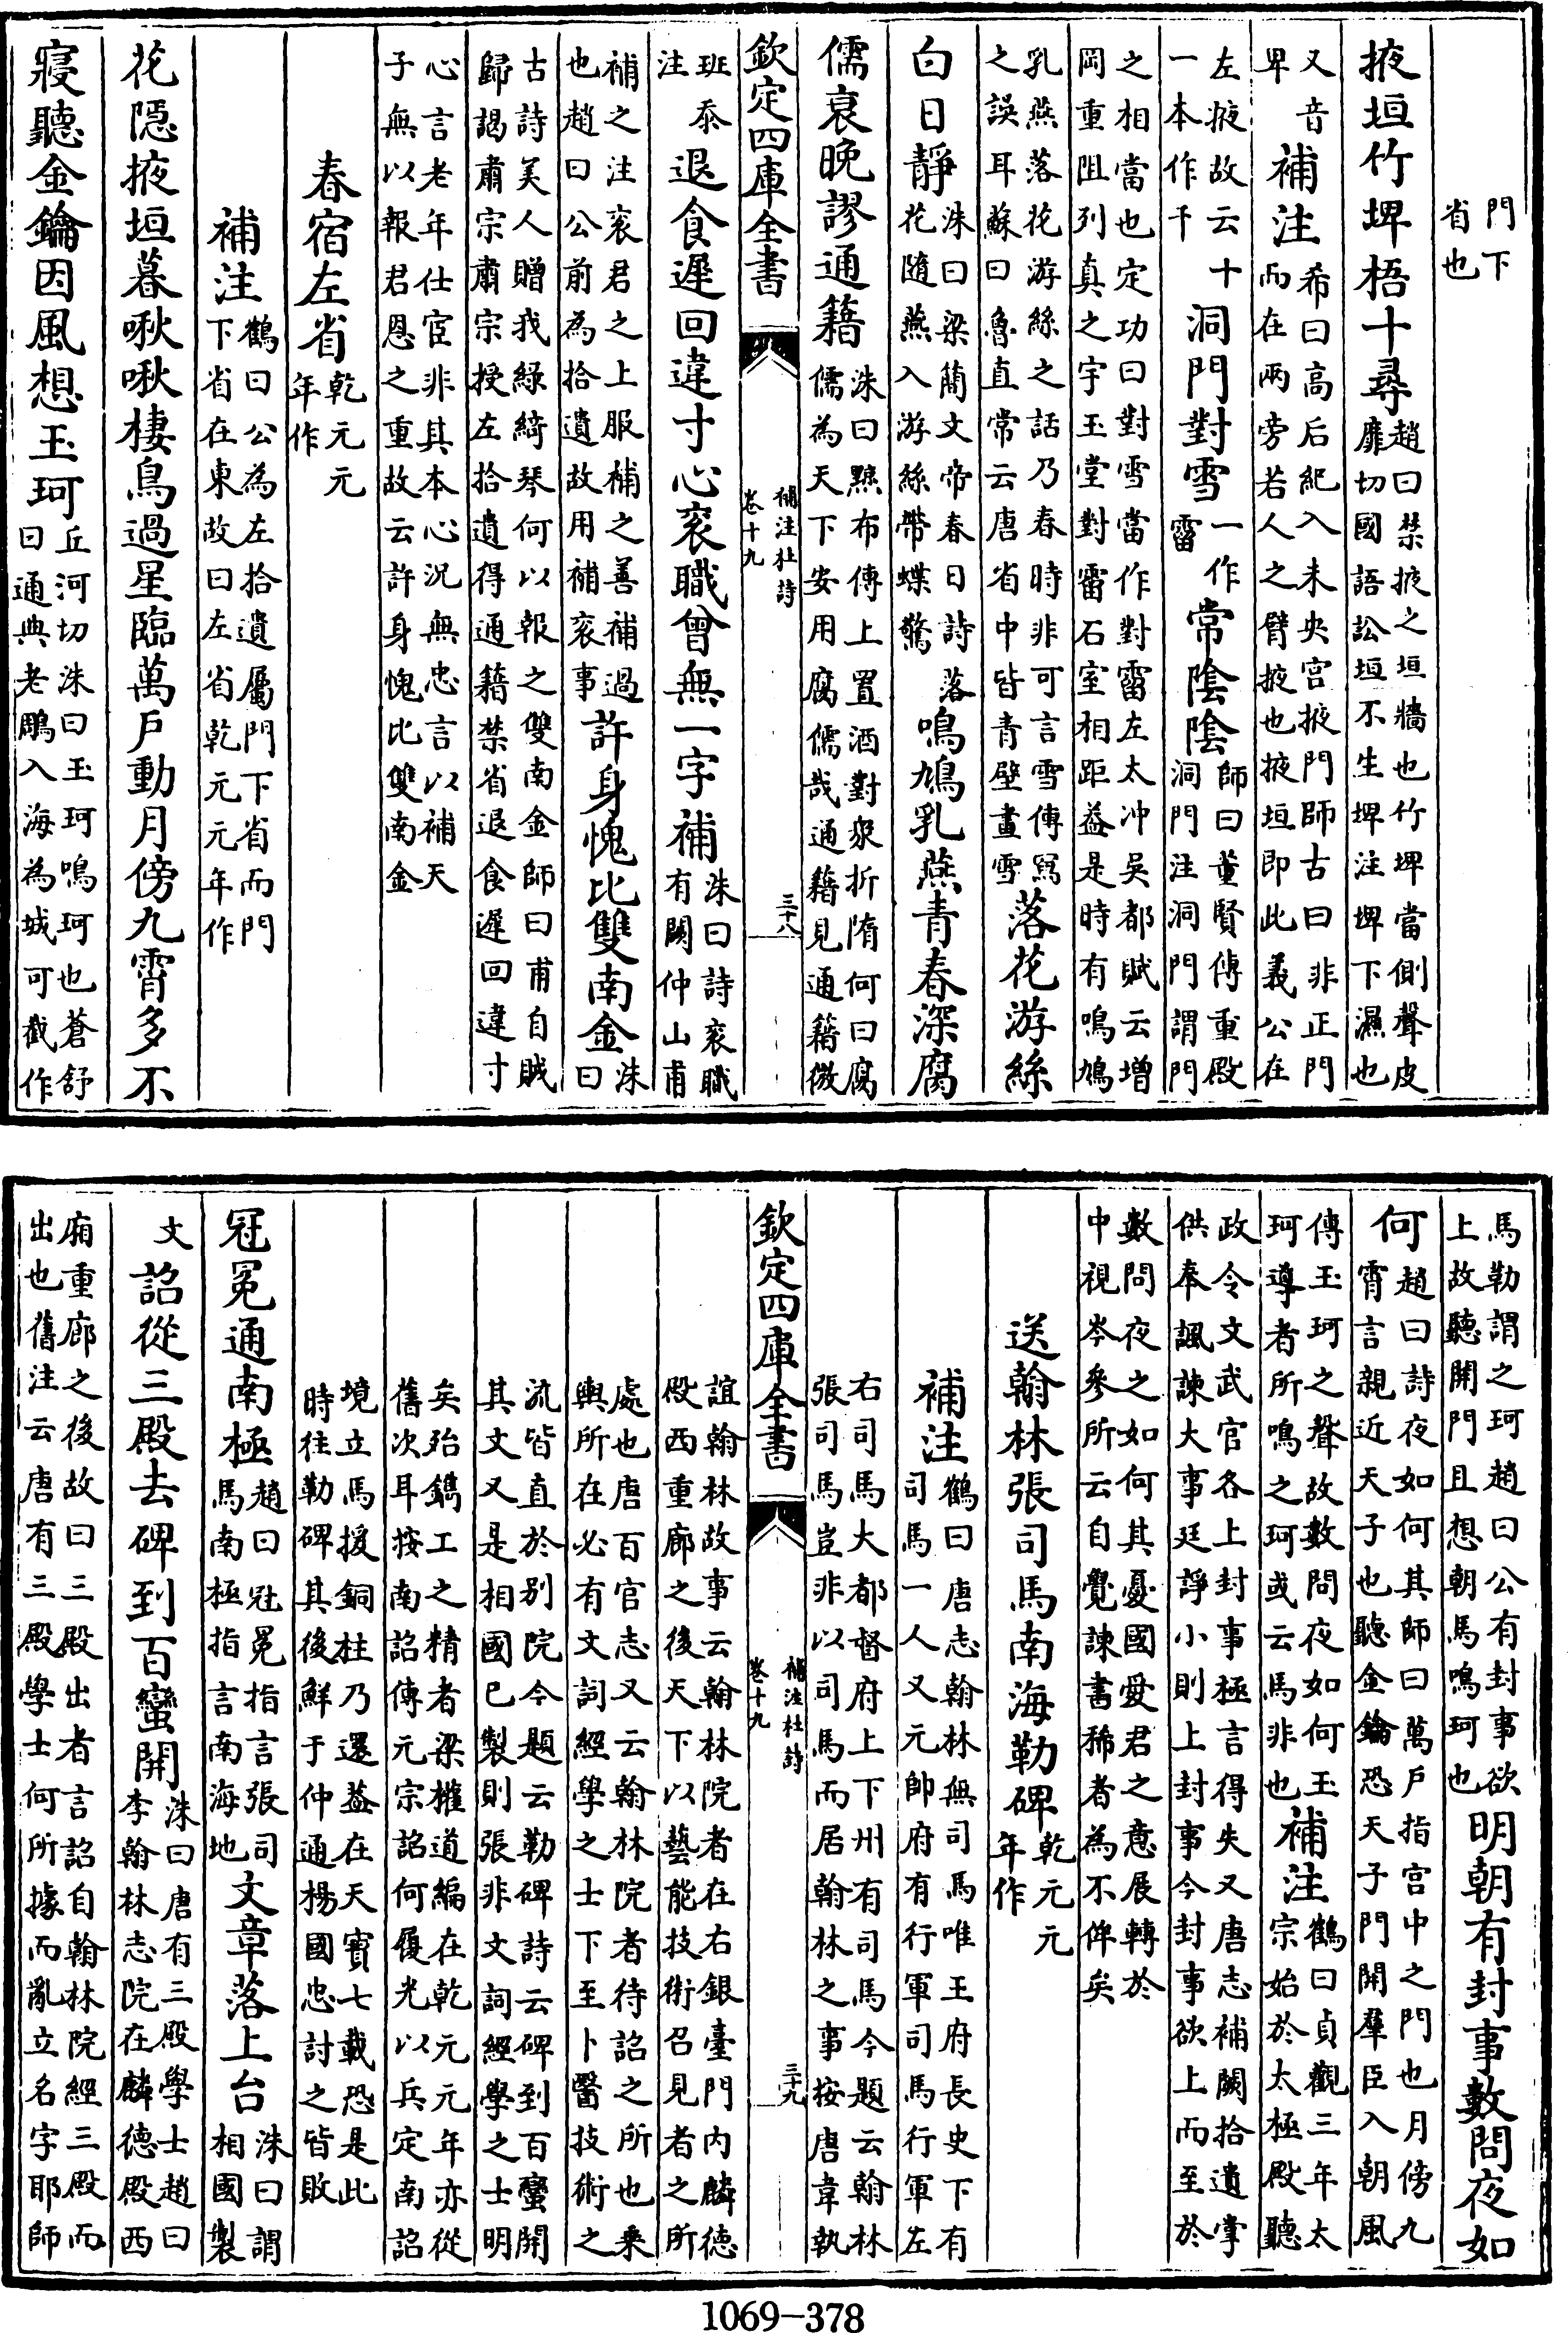 門下
省也
掖垣竹埤梧十尋趙曰禁掖之垣牆也竹埤當側聲皮
靡切國語訟垣不生埤注埤下濕也
又音
卑補注希曰高后紀入未央宫掖門師古曰非正門
而在兩旁若人之臂掖也掖垣即此義公在
左掖故云十
一本作千洞門對雪一作
霤常陰陰師曰董賢傳重殿
洞門注洞門謂門
之相當也定功曰對雪當作對霤左太冲吳都賦云增
岡重阻列真之宇玉堂對霤石室相距葢是時有鳴鳩
乳燕落花游絲之話乃春時非可言雪傳冩
之誤耳蘇曰魯直常云唐省中皆青壁畫雪落花游絲
白日靜洙曰梁簡文帝春日詩落
花隨燕入游絲帶蝶驚鳴鳩乳燕青春深腐
儒衰晚謬通籍洙曰黥布傳上置酒對衆折隋何曰腐
儒為天下安用腐儒哉通籍見通籍微
欽定四庫全書
補注杜詩
卷十九
三十八
班泰
注退食遲回違寸心衮職曾無一字補洙曰詩衮職
有闕仲山甫
補之注衮君之上服補之善補過
也趙曰公前為拾遺故用補衮事許身愧比雙南金洙
曰
古詩美人贈我緑綺琴何以報之雙南金師曰甫自賊
歸謁肅宗肅宗授左拾遺得通籍禁省退食遲回違寸
心言老年仕宦非其本心況無忠言以補天
子無以報君恩之重故云許身愧比雙南金
春宿左省乾元元
年作
補注鶴曰公為左拾遺屬門下省而門
下省在東故曰左省乾元元年作
花隱掖垣暮啾啾棲鳥過星臨萬戶動月傍九霄多不
寢聽金鑰因風想玉珂丘河切洙曰玉珂鳴珂也蒼舒
曰通典老鵰入海為城可截作
馬勒謂之珂趙曰公有封事欲
上故聽開門且想朝馬鳴珂也明朝有封事數問夜如
何趙曰詩夜如何其師曰萬戶指宫中之門也月傍九
霄言親近天子也聽金鑰恐天子門開羣臣入朝風
傳玉珂之聲故數問夜如何玉
珂導者所鳴之珂或云馬非也補注鶴曰貞觀三年太
宗始於太極殿聽
政令文武官各上封事極言得失又唐志補闕拾遺掌
供奉諷諫大事廷諍小則上封事今封事欲上而至於
數問夜之如何其憂國愛君之意展轉於
中視岑參所云自覺諫書稀者為不侔矣
送翰林張司馬南海勒碑乾元元
年作
補注鶴曰唐志翰林無司馬唯王府長史下有
司馬一人又元帥府有行軍司馬行軍左
右司馬大都督府上下州有司馬今題云翰林
張司馬豈非以司馬而居翰林之事按唐韋執
欽定四庫全書
補注杜詩
卷十九
三十九
誼翰林故事云翰林院者在右銀臺門内麟德
殿西重廊之後天下以藝能技術召見者之所
處也唐百官志又云翰林院者待詔之所也乘
輿所在必有文詞經學之士下至卜醫技術之
流皆直於别院今題云勒碑詩云碑到百蠻開
其文又是相國已製則張非文詞經學之士明
矣殆鐫工之精者梁權道編在乾元元年亦從
舊次耳按南詔傳元宗詔何履光以兵定南詔
境立馬援銅柱乃還葢在天寶七載恐是此
時往勒碑其後鮮于仲通楊國忠討之皆敗
冠冕通南極趙曰冠冕指言張司
馬南極指言南海地文章落上台洙曰謂
相國製
文詔從三殿去碑到百蠻開洙曰唐有三殿學士趙曰
李翰林志院在麟德殿西
廂重廊之後故曰三殿出者言詔自翰林院經三殿而
出也舊注云唐有三殿學士何所據而亂立名字耶師
1069-378